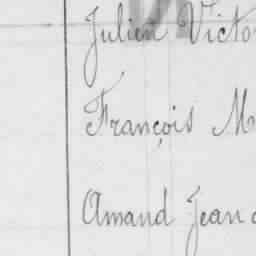 Julien Victo
François M
Amand Jean